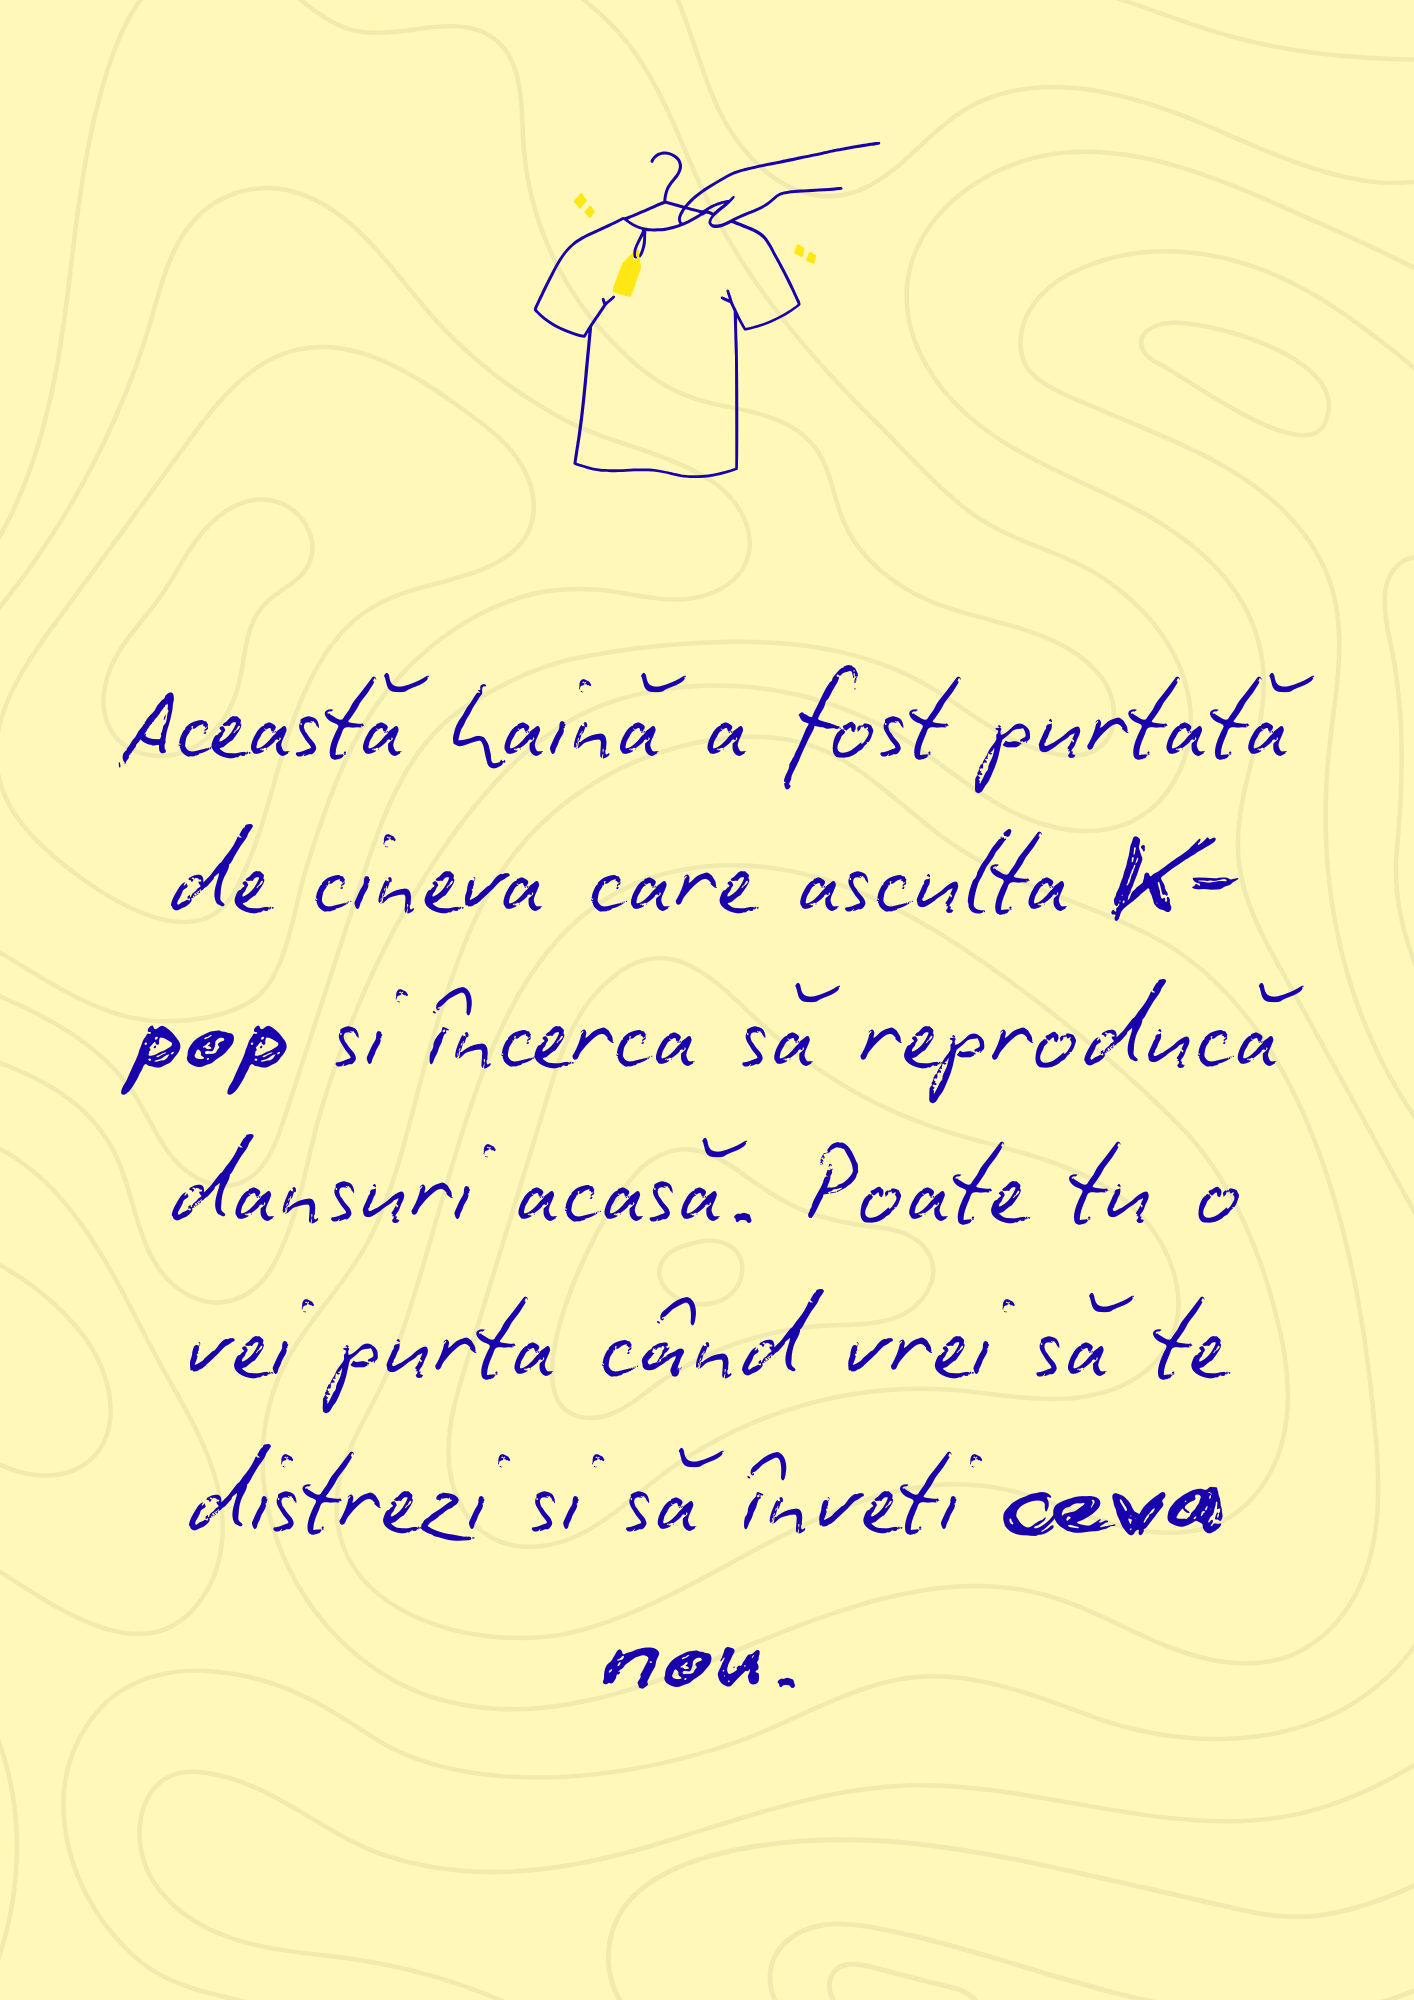 Această haină a fost purtată
de cineva care asculta K-
pop si încerca să reproducă
dansuri acasă. Poate tu o
vei purta când vrei să te
distrezi si să înveti ceva
nou.